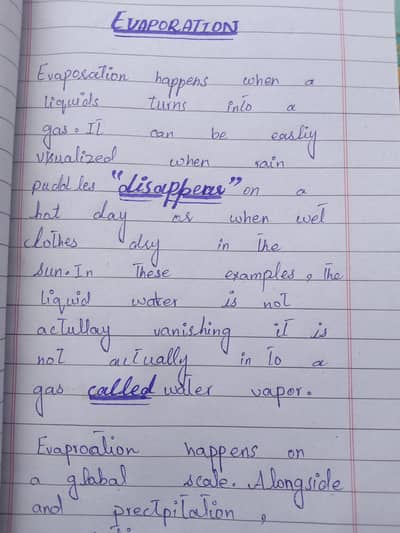 EVAPORATION
Evaposation happens when a
liquids turns into a
gas. It can be easliy
visualized when rain
puddles "disappear" on a
hot day or when wet
clothes dry in the
sun. In these examples, the
liquid water is not
actullay vanishing it is
not actually in to a
gas called water vapor.
Evaproation happens on
a glabal scale. Alongside
and prectpitation,